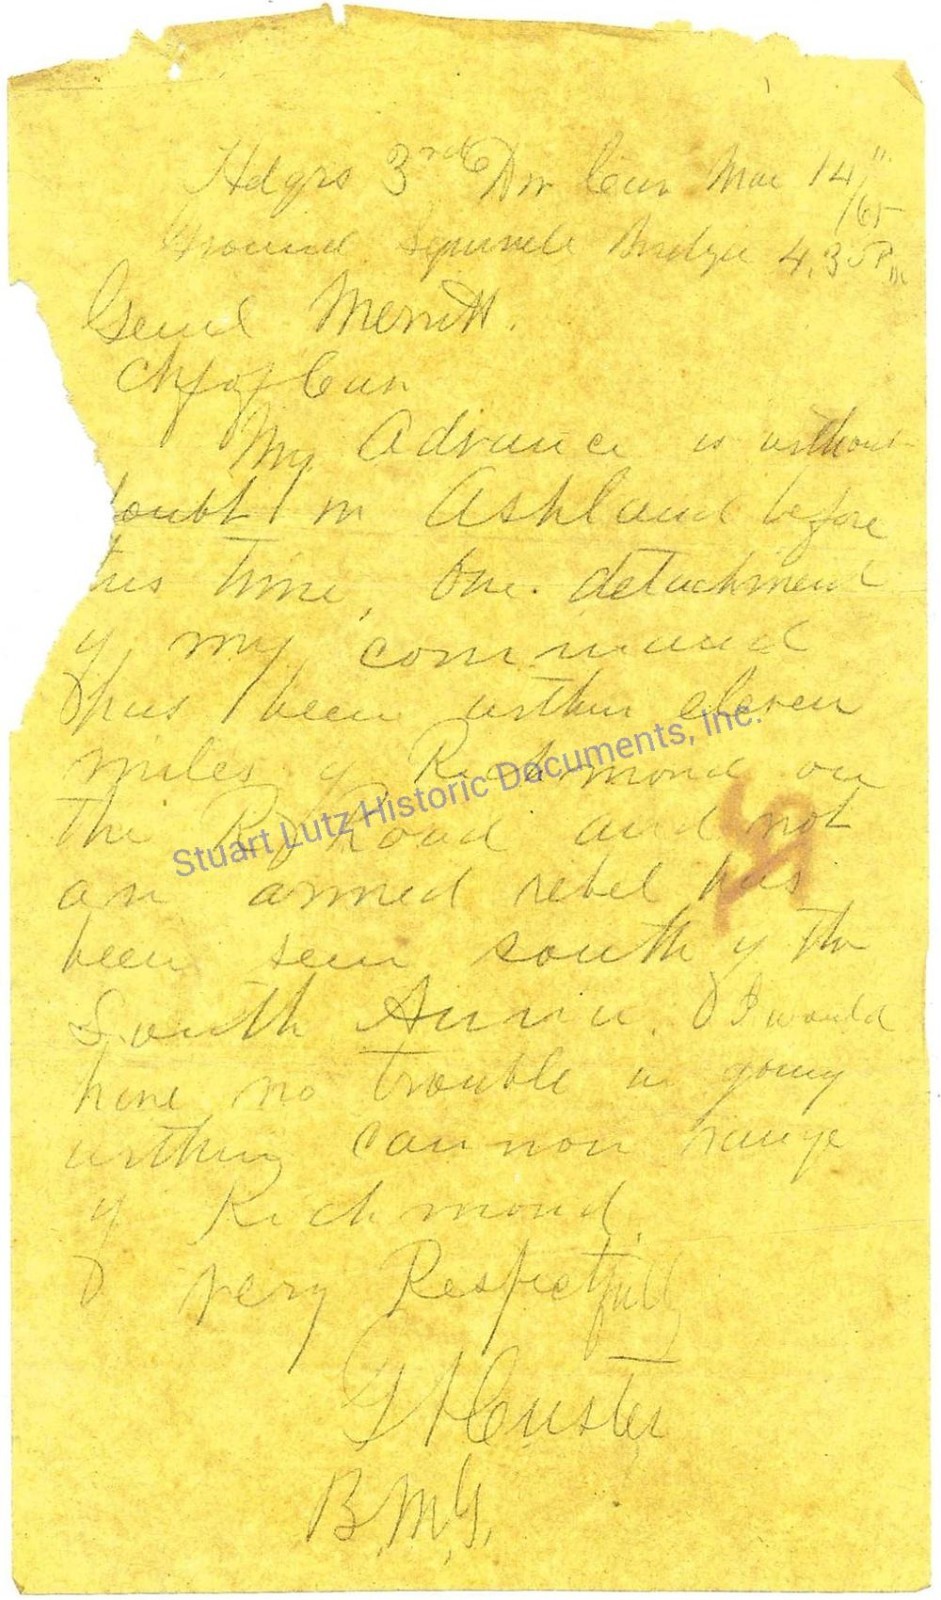 Hdqrs 3rd Div Cav Mar 14"/65
Ground Squirrel Bridge 4.35 Pm
Genl Merritt.
Chf of Cav
My Advance is without
doubt in Ashland before
this time, One detachment
of my command
has been within eleven
miles of Richmond on
the R Road and not
an armed rebel has
been seen south of the
South Anna. I would
have no trouble in going
within cannon range
of Richmond.
Very Respectfully
G A Custer
B.M.G.
Stuart Lutz Historic Documents, Inc.